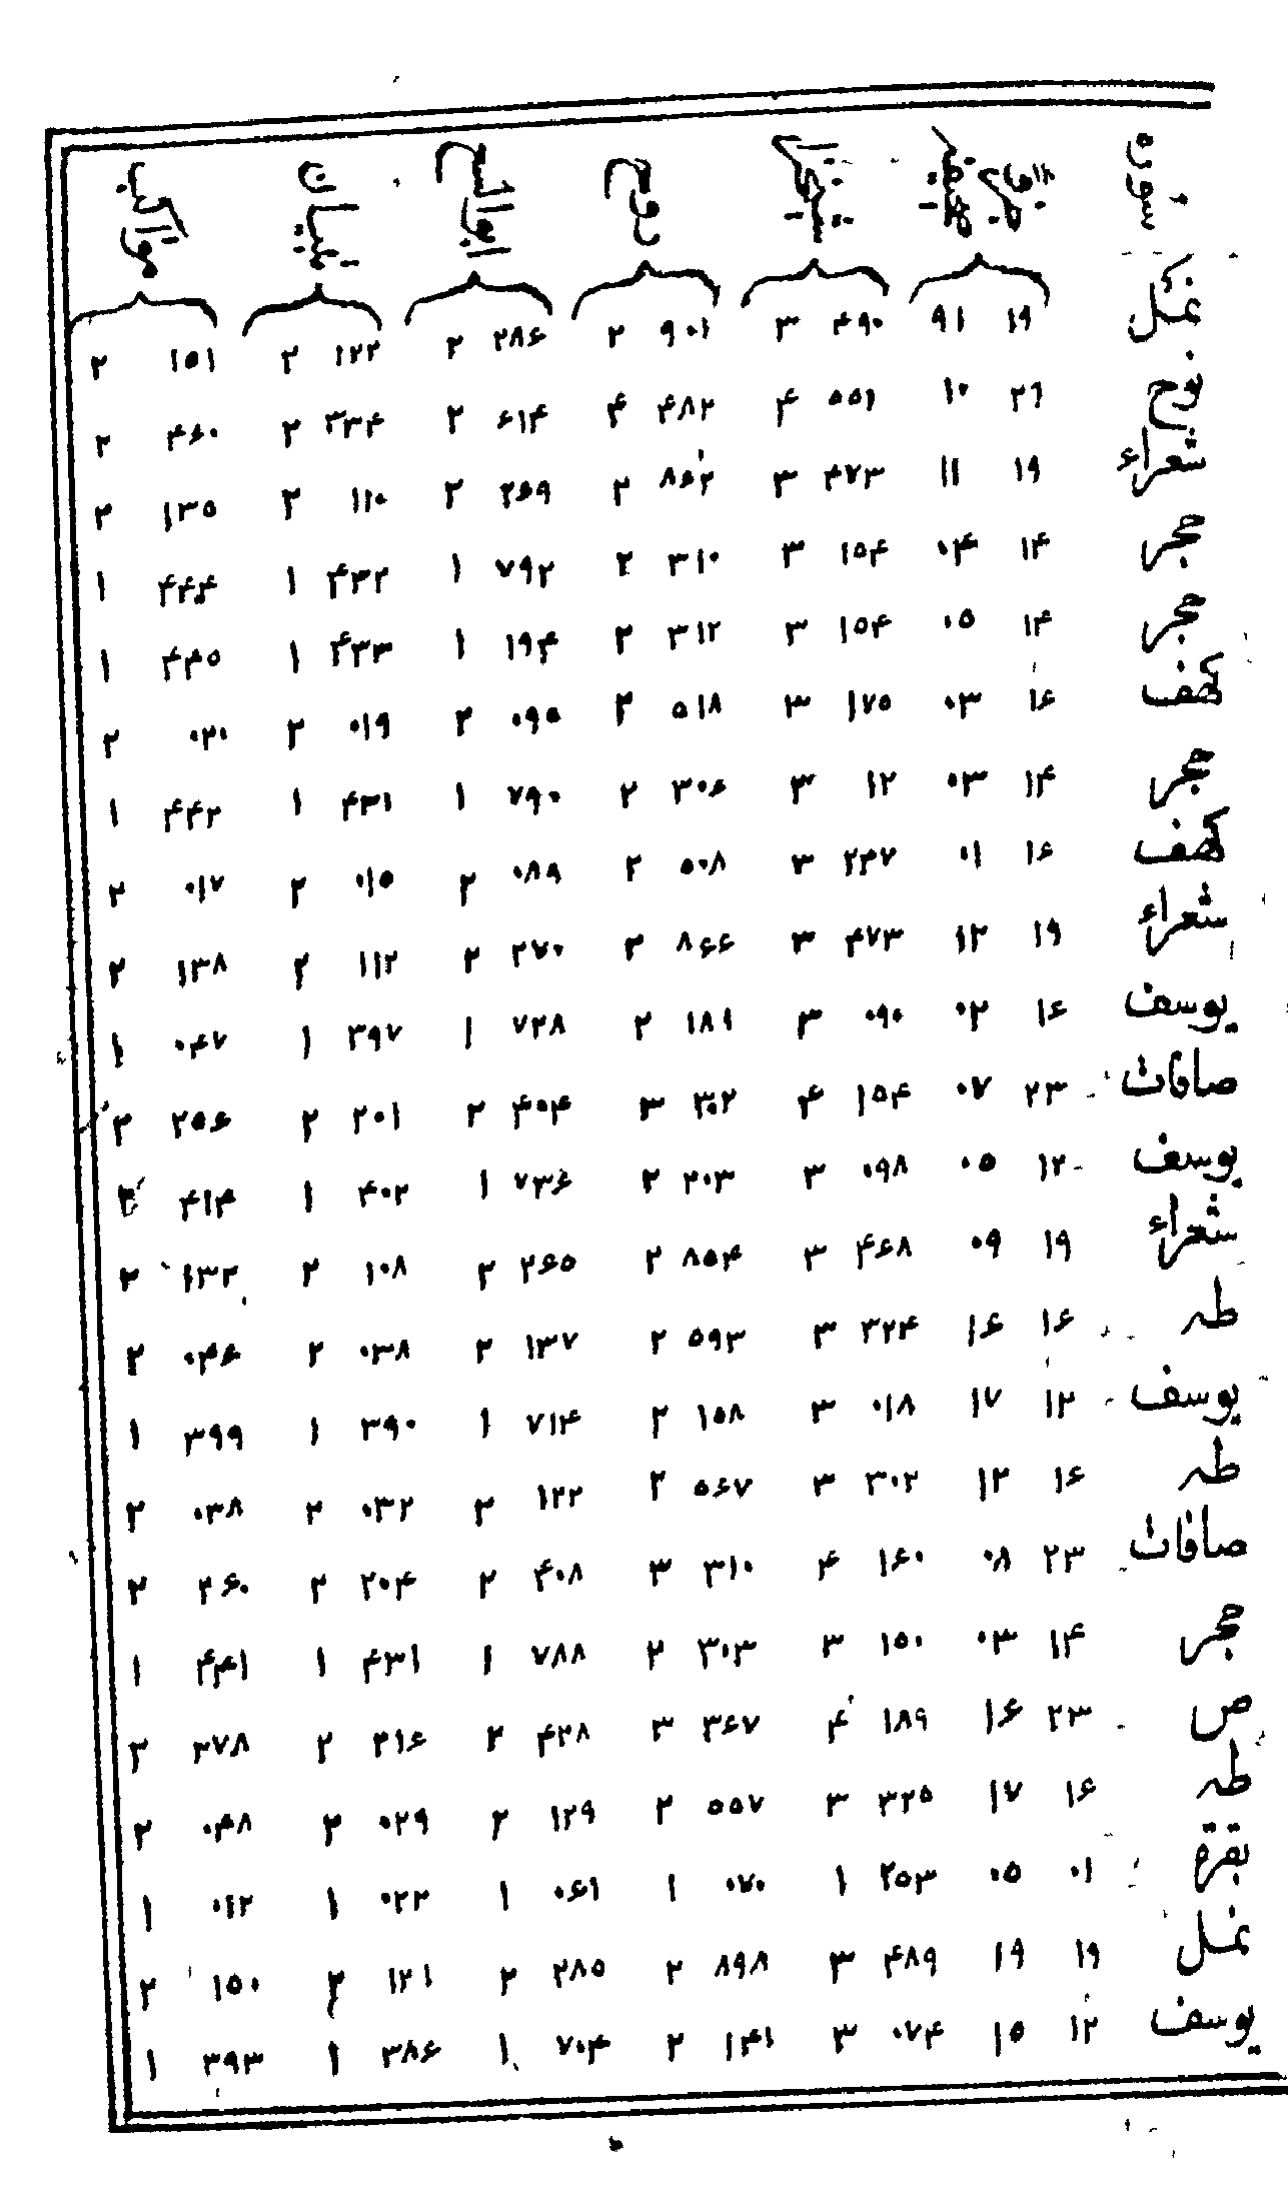 سورہ
نمل ۱۹ ۹۱ ۴۹۰ ۳ ۹۰۱ ۲ ۲۸۶ ۲ ۱۲۲ ۲ ۱۵۱ ۲
نوح ۲۹ ۱۰ ۵۵۱ ۴ ۴۸۲ ۴ ۶۱۴ ۲ ۳۳۴ ۲ ۴۶۰ ۲
شعراء ۱۹ ۱۱ ۴۷۳ ۳ ۸۶۲ ۲ ۲۶۹ ۲ ۱۱۰ ۲ ۱۳۵ ۲
حجر ۱۴ ۰۴ ۱۵۴ ۳ ۳۱۰ ۲ ۷۹۲ ۱ ۴۳۲ ۱ ۴۴۴ ۱
حجر ۱۴ ۰۵ ۱۵۴ ۳ ۳۱۲ ۲ ۱۹۴ ۱ ۴۳۳ ۱ ۴۴۵ ۱
کھف ۱۶ ۰۳ ۱۷۵ ۳ ۵۱۸ ۲ ۰۹۵ ۲ ۰۱۹ ۲ ۰۲۰ ۲
حجر ۱۴ ۰۳ ۱۲ ۳ ۳۰۶ ۲ ۷۹۰ ۱ ۴۳۱ ۱ ۴۴۲ ۱
کھف ۱۶ ۰۱ ۲۴۷ ۳ ۵۰۸ ۲ ۰۸۹ ۲ ۰۱۵ ۲ ۰۱۷ ۲
شعراء ۱۹ ۱۲ ۴۷۳ ۳ ۸۶۶ ۲ ۲۷۰ ۲ ۱۱۲ ۲ ۱۳۸ ۲
یوسف ۱۶ ۰۲ ۰۹۰ ۳ ۱۸۹ ۲ ۷۲۸ ۱ ۳۹۷ ۱ ۰۴۷ ۱
صافات ۲۳ ۰۷ ۱۵۴ ۴ ۳۰۲ ۳ ۴۰۴ ۲ ۲۰۱ ۲ ۲۵۶ ۲
یوسف ۱۲ ۰۵ ۰۹۸ ۳ ۲۰۳ ۲ ۷۳۶ ۱ ۴۰۲ ۱ ۴۱۴
شعراء ۱۹ ۰۹ ۴۶۸ ۳ ۸۵۴ ۲ ۲۶۵ ۲ ۱۰۸ ۲ ۱۳۲ ۲
طہ ۱۶ ۱۶ ۳۲۴ ۳ ۵۹۳ ۲ ۱۳۷ ۲ ۰۳۸ ۲ ۰۴۶ ۲
یوسف ۱۲ ۱۷ ۰۱۸ ۳ ۱۵۸ ۲ ۷۱۴ ۱ ۳۹۰ ۱ ۳۹۹ ۱
طہ ۱۶ ۱۲ ۳۰۲ ۳ ۵۶۷ ۲ ۱۲۲ ۲ ۰۳۲ ۲ ۰۳۸ ۲
صافات ۲۳ ۰۸ ۱۶۰ ۴ ۳۱۰ ۳ ۴۰۸ ۲ ۲۰۴ ۲ ۲۶۰ ۲
حجر ۱۴ ۰۳ ۱۵۰ ۳ ۳۰۳ ۲ ۷۸۸ ۱ ۴۳۱ ۱ ۴۴۱ ۱
ص ۲۳ ۱۶ ۱۸۹ ۴ ۳۶۷ ۳ ۴۲۸ ۲ ۲۱۶ ۲ ۲۷۸ ۲
طہ ۱۶ ۱۷ ۳۲۵ ۳ ۵۵۷ ۲ ۱۲۹ ۲ ۰۲۹ ۲ ۰۴۸ ۲
بقرۃ ۰۱ ۰۵ ۲۵۳ ۱ ۰۷۰ ۱ ۰۶۱ ۱ ۰۲۲ ۱ ۰۱۲ ۱
نمل ۱۹ ۱۹ ۴۸۹ ۳ ۸۹۸ ۲ ۲۸۵ ۲ ۱۲۱ ۲ ۱۵۰ ۲
یوسف ۱۲ ۱۵ ۰۷۴ ۳ ۱۴۱ ۲ ۷۰۴ ۱ ۳۸۶ ۱ ۳۹۳ ۱